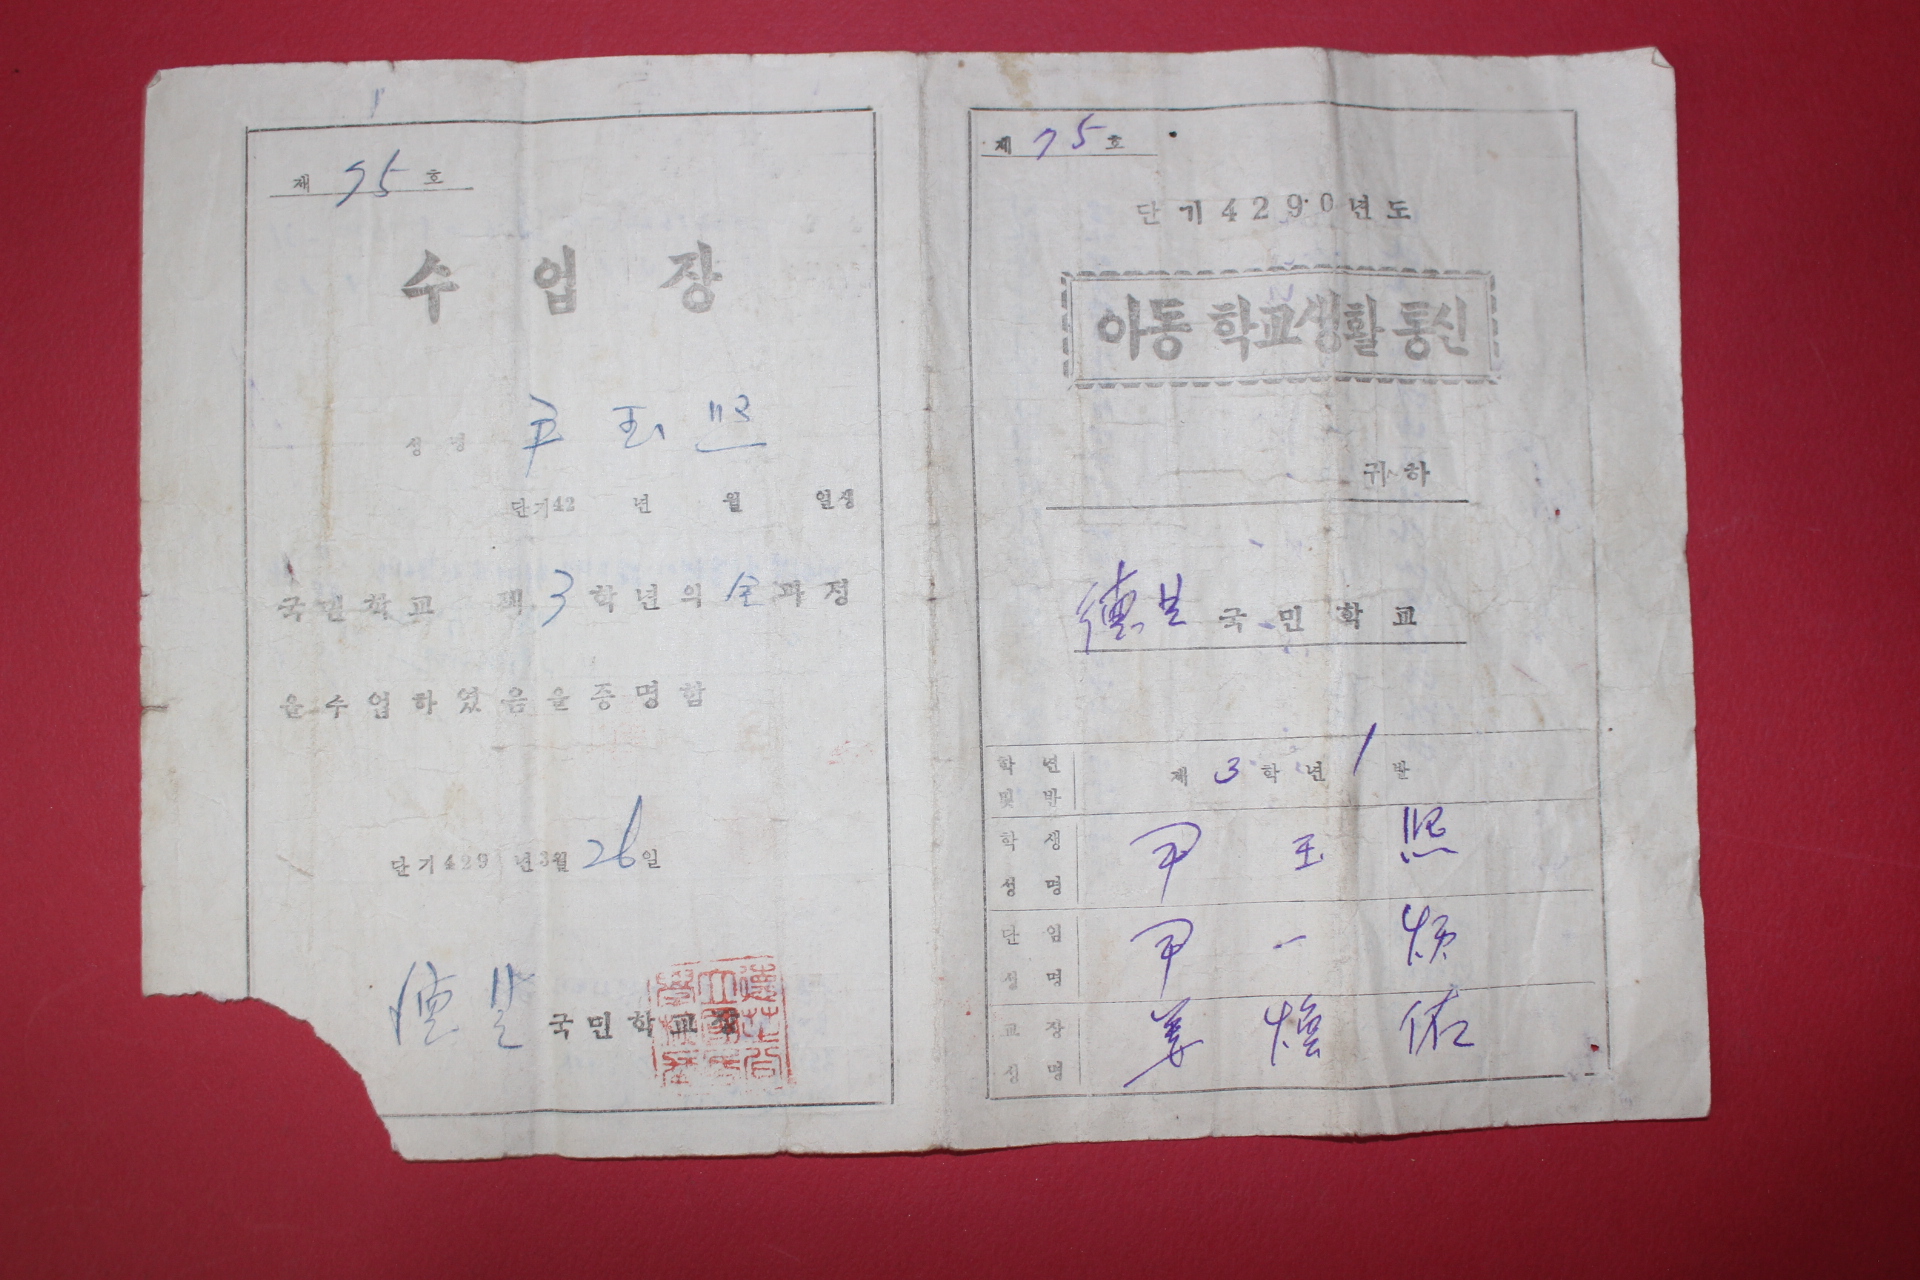 제 75 호
수업장
성명 尹玉熙
단기42 년 월 일생
국민학교 제3학년의 全과정
을수업하였음을증명함
단기429 년3월26일
국민학교장
제 75 호
단기4290년도
아동 학교생활 통신
귀하
국민학교
학년 및 반 제3학년1반
학생 성명 尹玉熙
단임 성명 尹一
교장 성명 姜煥佑